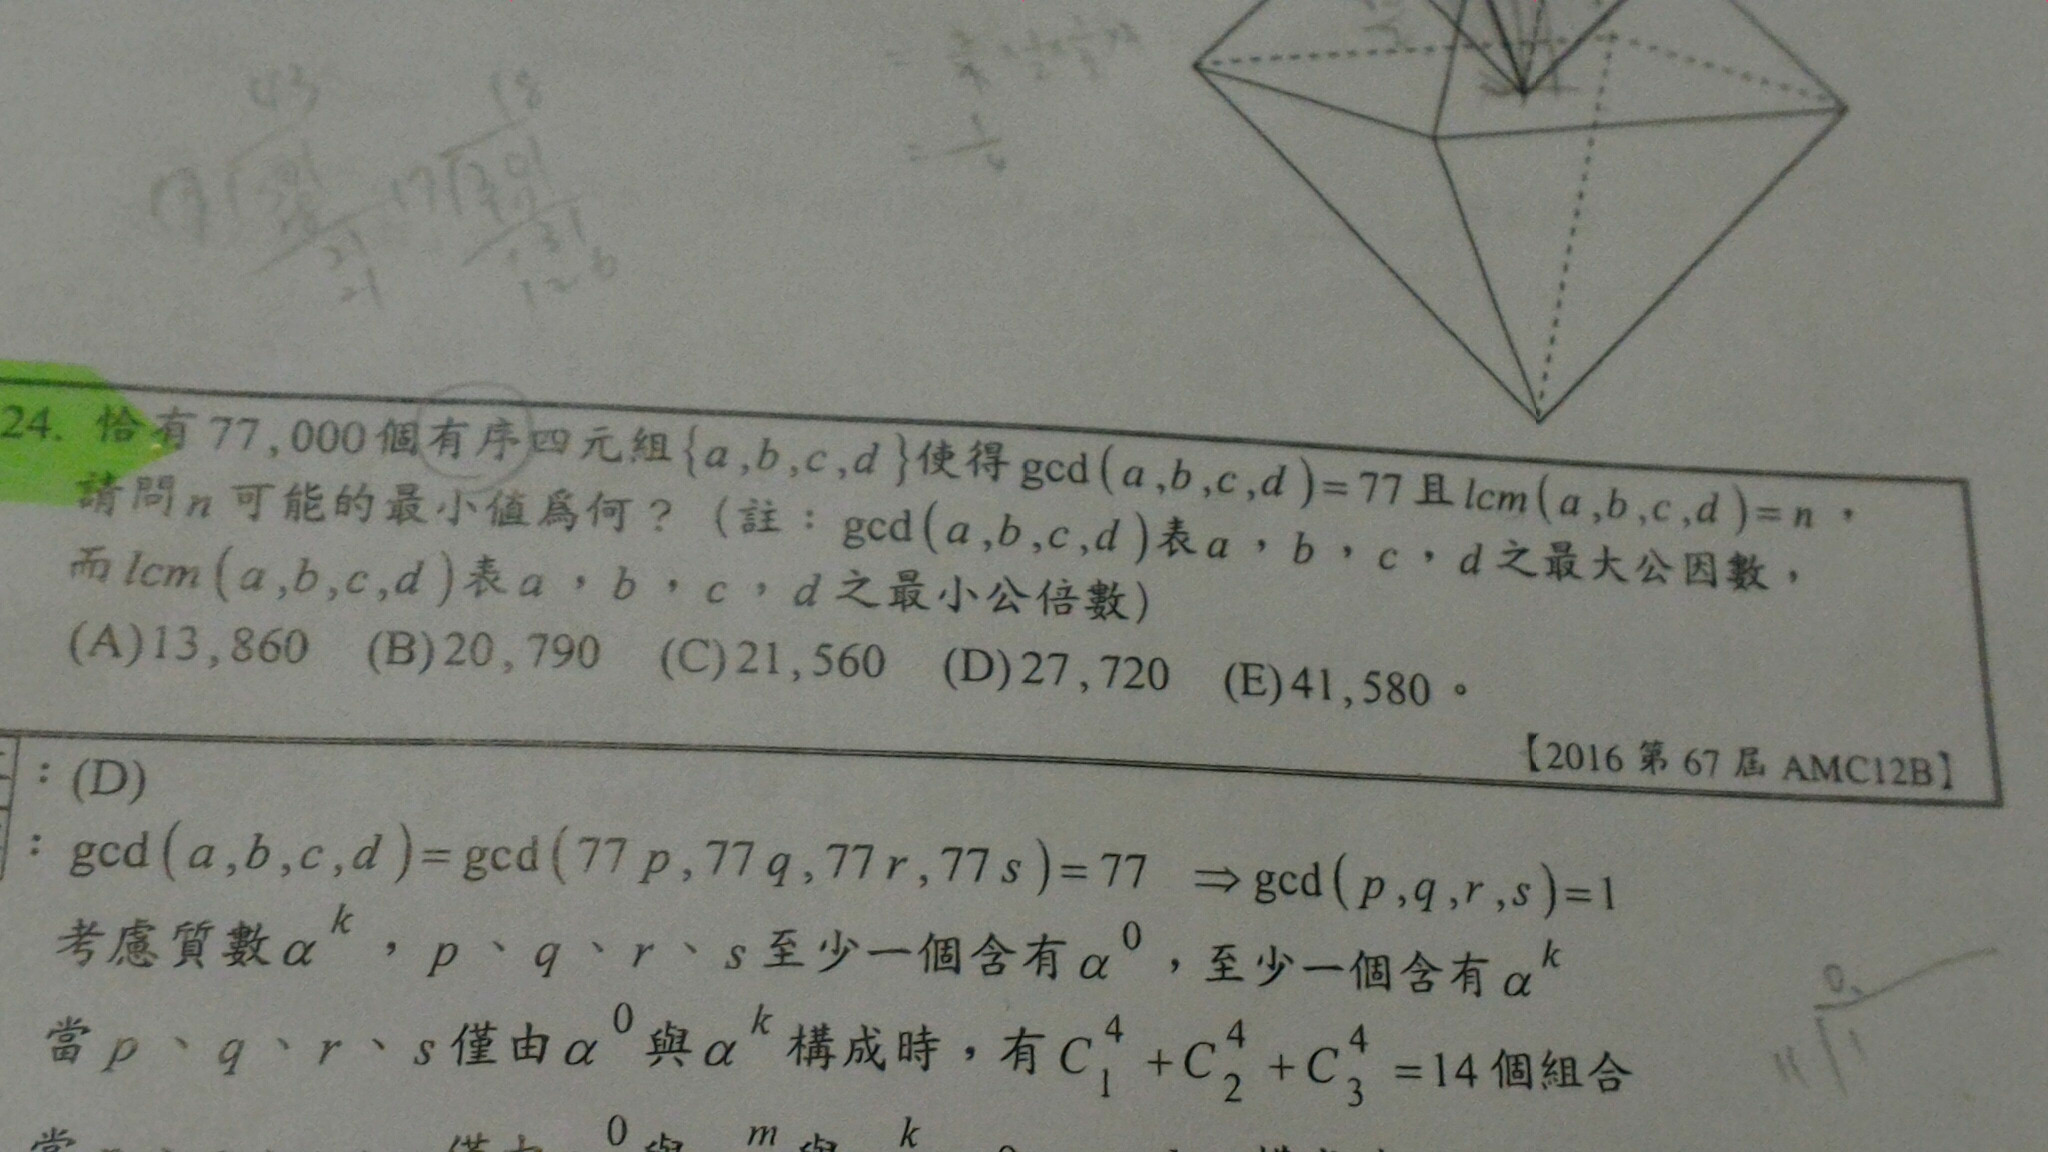 43
18
17
24. 恰有77,000個有序四元組{a,b,c,d}使得gcd(a,b,c,d)=77且lcm(a,b,c,d)=n，
請問n可能的最小值爲何？(註：gcd(a,b,c,d)表a，b，c，d之最大公因數，
而lcm(a,b,c,d)表a，b，c，d之最小公倍數)
(A)13,860 (B)20,790 (C)21,560 (D)27,720 (E)41,580。
【2016 第 67 屆 AMC12B】
：(D)
：gcd(a,b,c,d)=gcd(77p,77q,77r,77s)=77 ⇒gcd(p,q,r,s)=1
考慮質數α^k，p、q、r、s至少一個含有α^0，至少一個含有α^k
當p、q、r、s僅由α^0與α^k構成時，有C_1^4+C_2^4+C_3^4=14個組合